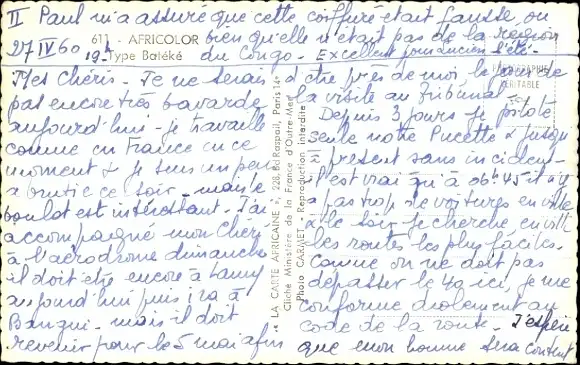 II Paul m'a assuré que cette coiffure était fausse, ou
bien qu'elle n'était pas de la region
du Congo. Excellent pour Lucien l'été.
27 IV 60
19h
611 - AFRICOLOR
Type Batéké
Mes Chéris - Je ne serais
pas encore très bavarde
aujourd'hui - je travaille
comme en France en ce
moment & je suis un peu
abrutie ce soir - mais le
boulot est intéressant. J'ai
accompagné mon Chéri
à l'aérodrome dimanche
il doit être encore à Lamy
aujourd'hui puis ira à
Bangui - mais il doit
revenir pour le 5 mai afin
« LA CARTE AFRICAINE », 228, Bd Raspail, Paris 14e
Cliché Ministère de la France d'Outre-Mer
Photo CARMET - Reproduction interdite
PHOTOGRAPHIE
VÉRITABLE
d'être près de moi le jour de
la visite au Tribunal
Depuis 3 jours je pilote
seule notre Pucette & jusqu'
à présent sans incident
il est vrai qu'à 06h45 il n'y
a pas trop de voitures en ville
& le soir je cherche
les routes les plus faciles.
Comme on ne doit pas
dépasser le 40 ici, je me
conforme drolement au
code de la route - J'espère
que mon homme sera content